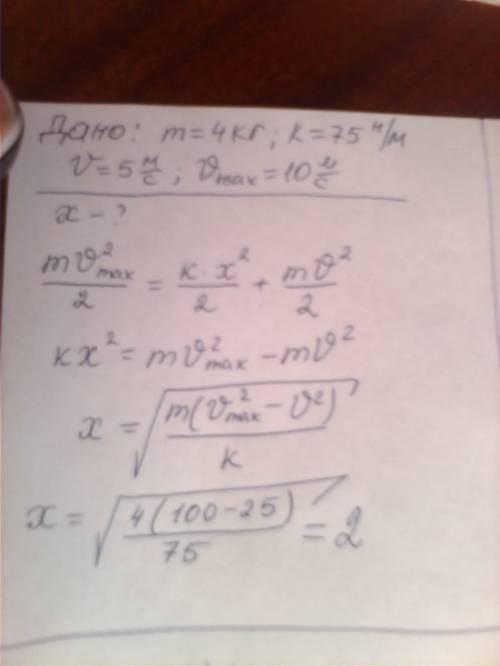 Дано: m=4кг; k=75 н/м
υ=5 м/с; υmax=10 м/с
x - ?
mυ²max/2 = k·x²/2 + mυ²/2
kx² = mυ²max - mυ²
x = √(m(υ²max - υ²)/k)
x = √(4(100-25)/75) = 2